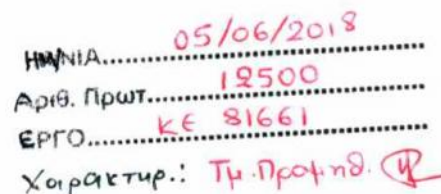 ΗΜ/ΝΙΑ.....05/06/2018
Αριθ. Πρωτ.....12500
ΕΡΓΟ.....ΚΕ 81661
Χαρακτηρ.: Τμ. Προμηθ.